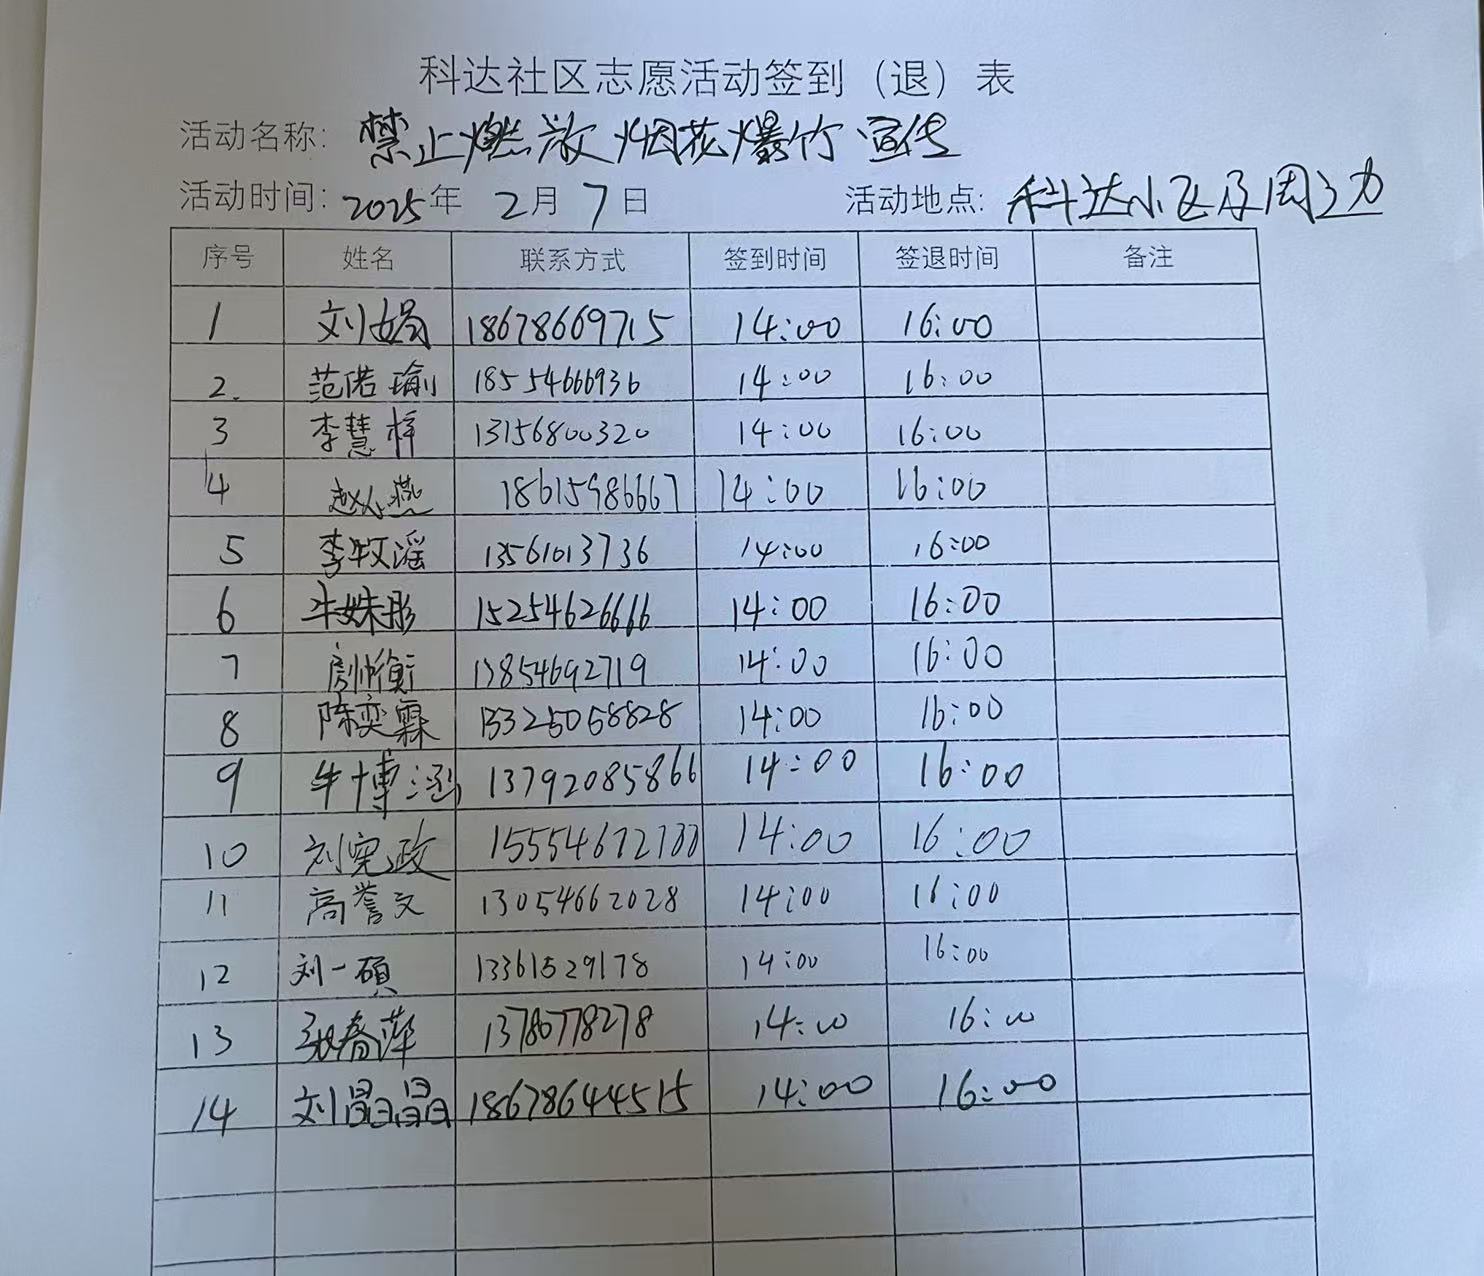 科达社区志愿活动签到（退）表
活动名称: 禁止燃放烟花爆竹宣传
活动时间: 2025年 2月 7日 活动地点: 科达小区及周边
序号 姓名 联系方式 签到时间 签退时间 备注
1 刘娟 18678669715 14:00 16:00
2. 范偌瑜 18554666936 14:00 16:00
3 李慧梓 13156800320 14:00 16:00
4 赵燕 18615986667 14:00 16:00
5 李牧滛 13561013736 14:00 16:00
6 牛姝彤 15254626666 14:00 16:00
7 13854692719 14:00 16:00
8 陈奕霖 13325058828 14:00 16:00
9 牛博涵 13792085866 14:00 16:00
10 刘宪政 14:00 16:00
11 高誉文 13054662028 14:00 16:00
12 刘一硕 13361529178 14:00 16:00
13 张春萍 14:00 16:00
14 刘晶晶 18678644515 14:00 16:00